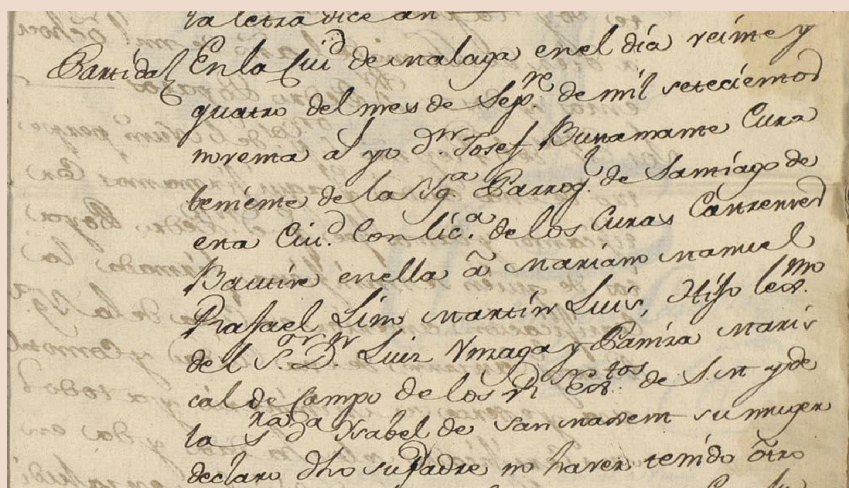 la letra dice asi
Partida En la Ciud de malaga en el día veinte y
quatro del mes de Sepre. de mil setecientos
noventa a yo Dn Josef Bustamante Cura
teniente de la Yga. Parroq. de Santiago de
esta Ciud. con lica. de los Curas Canrented
Bautize en ella â Mariano Manuel
Rafael Lino Martin Luis, Hijo lexmo.
del Sor. Dn Luis Unzaga y Ameza Maris
cal de Campo de los Rs Extos. de S. M y de
la Sra Da Ysabel de San maxent su muger
declaro dho su Padre no haver tenido ôtro